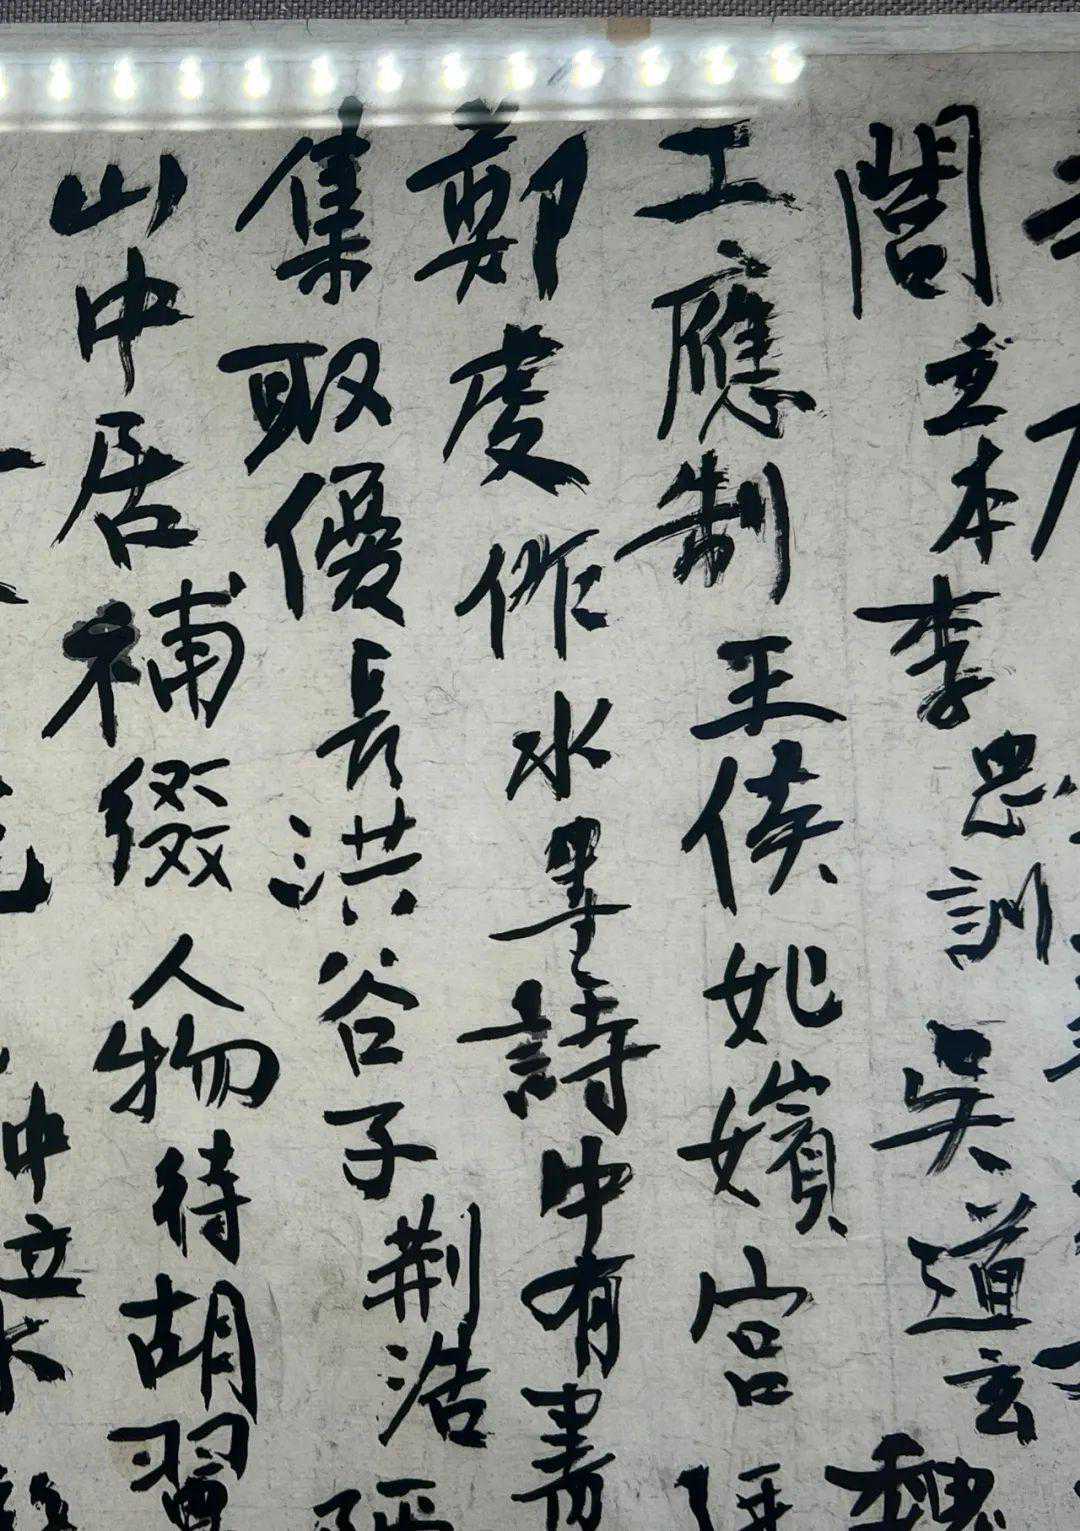 閻立本李思訓吳道玄魏
工應制王侯妃嬪宮
鄭虔作水墨詩中有畫
集取優長洪谷子荆浩
山中居補綴人物待胡翼
中立